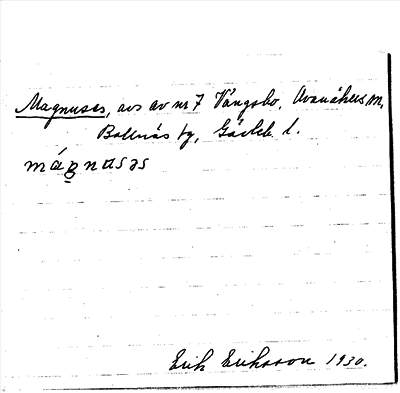 Magnuses, avs av nr 7 Vängsbo, Arvanäkers m,
Bollnäs sn, Gävleb l.
mágnusəs
Erik Eriksson 1930.